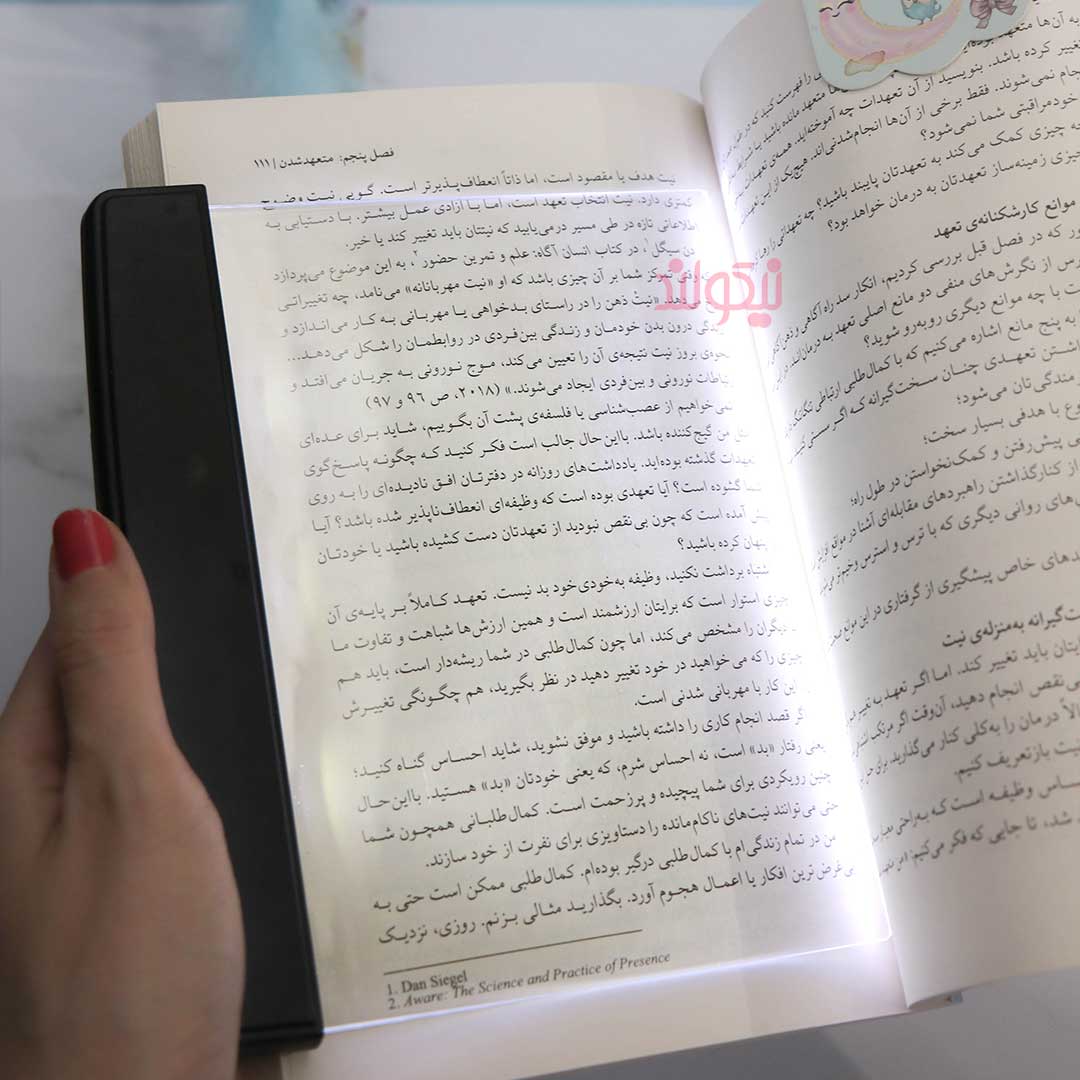 به آن‌ها متعهد
تغییر کرده باشد. بنویسید از آن تعهدات چه آموخته‌اید. همه‌ی تعهدات
انجام نمی‌شوند. فقط برخی از آن‌ها انجام‌شدنی‌اند. هیچ‌یک از این
خودمراقبتی شما نمی‌شود؟
چه چیزی کمک می‌کند به تعهدتان پایبند باشید؟ چه تعهداتی
چیزی زمینه‌ساز تعهدتان به درمان خواهد بود؟
موانع کارشکنانه‌ی تعهد
که در فصل قبل بررسی کردیم، انکار سد راه آگاهی و ذهن
از نگرش‌های منفی دو مانع اصلی تعهد به درمان‌اند.
با چه موانع دیگری روبه‌رو شوید؟
به پنج مانع اشاره می‌کنیم که با کمال‌طلبی ارتباطی تنگاتنگ
تعهدی چنان سخت‌گیرانه که اگر
زندگی‌تان می‌شود؛
با هدفی بسیار سخت؛
پیش‌رفتن و کمک‌نخواستن در طول راه؛
کنارگذاشتن راهبردهای مقابله‌ای آشنا در مواقع
روانی دیگری که با ترس و استرس وخیم‌تر
خاص پیشگیری از گرفتاری در این موانع
به‌منزله‌ی نیت
باید تغییر کند. اما اگر تعهد به تغییر
بی‌نقص انجام دهید، آن‌وقت اگر مرتکب
درمان را به‌کلی کنار می‌گذارید. برای
نیت بازتعریف کنیم.
وظیفه است که به‌راحتی
شد، تا جایی که فکر می‌کنیم:
فصل پنجم: متعهدشدن | ۱۱۱
نیت هدف یا مقصود است، اما ذاتاً انعطاف‌پذیرتر است. گویی نیت وضوح
کمتری دارد. نیت انتخاب تعهد است، اما با آزادی عمل بیشتر. با دستیابی به
اطلاعاتی تازه در طی مسیر درمی‌یابید که نیتتان باید تغییر کند یا خیر.
دن سیگل۱، در کتاب انسان آگاه: علم و تمرین حضور۲، به این موضوع می‌پردازد
وقتی تمرکز شما بر آن چیزی باشد که او «نیت مهربانانه» می‌نامد، چه تغییراتی
می‌دهد. «نیتْ ذهن را در راستای بدخواهی یا مهربانی به کار می‌اندازد و
زندگی درون بدن خودمان و زندگی بین‌فردی در روابطمان را شکل می‌دهد...
نحوه‌ی بروز نیت نتیجه‌ی آن را تعیین می‌کند، موج نورونی به جریان می‌افتد و
ارتباطات نورونی و بین‌فردی ایجاد می‌شوند.» (۲۰۱۸، ص ۹۶ و ۹۷)
نمی‌خواهیم از عصب‌شناسی یا فلسفه‌ی پشت آن بگوییم، شاید برای عده‌ای
مثل من گیج‌کننده باشد. بااین‌حال جالب است فکر کنید که چگونه پاسخ‌گوی
تعهدات گذشته بوده‌اید. یادداشت‌های روزانه در دفترتان افق نادیده‌ای را به روی
شما گشوده است؟ آیا تعهدی بوده است که وظیفه‌ای انعطاف‌ناپذیر شده باشد؟ آیا
پیش آمده است که چون بی‌نقص نبودید از تعهدتان دست کشیده باشید یا خودتان
پنهان کرده باشید؟
اشتباه برداشت نکنید، وظیفه به‌خودی‌خود بد نیست. تعهد کاملاً بر پایه‌ی آن
چیزی استوار است که برایتان ارزشمند است و همین ارزش‌ها شباهت و تفاوت ما
دیگران را مشخص می‌کند، اما چون کمال‌طلبی در شما ریشه‌دار است، باید هم
چیزی را که می‌خواهید در خود تغییر دهید در نظر بگیرید، هم چگونگی تغییرش
این کار با مهربانی شدنی است.
اگر قصد انجام کاری را داشته باشید و موفق نشوید، شاید احساس گناه کنید؛
یعنی رفتار «بد» است، نه احساس شرم، که یعنی خودتان «بد» هستید. بااین‌حال
چنین رویکردی برای شما پیچیده و پرزحمت است. کمال‌طلبانی همچون شما
حتی می‌توانند نیت‌های ناکام‌مانده را دستاویزی برای نفرت از خود سازند.
من در تمام زندگی‌ام با کمال‌طلبی درگیر بوده‌ام. کمال‌طلبی ممکن است حتی به
بی‌غرض‌ترین افکار یا اعمال هجوم آورد. بگذارید مثالی بزنم. روزی، نزدیک
1. Dan Siegel
2. Aware: The Science and Practice of Presence
نیکولند